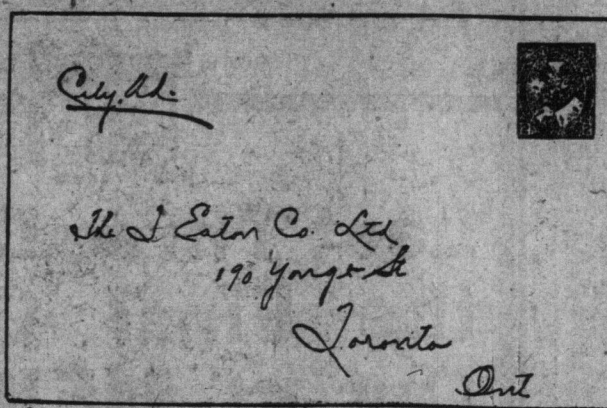 City Ad.
The T Eaton Co. Ltd
190 Yonge St
Toronto
Ont